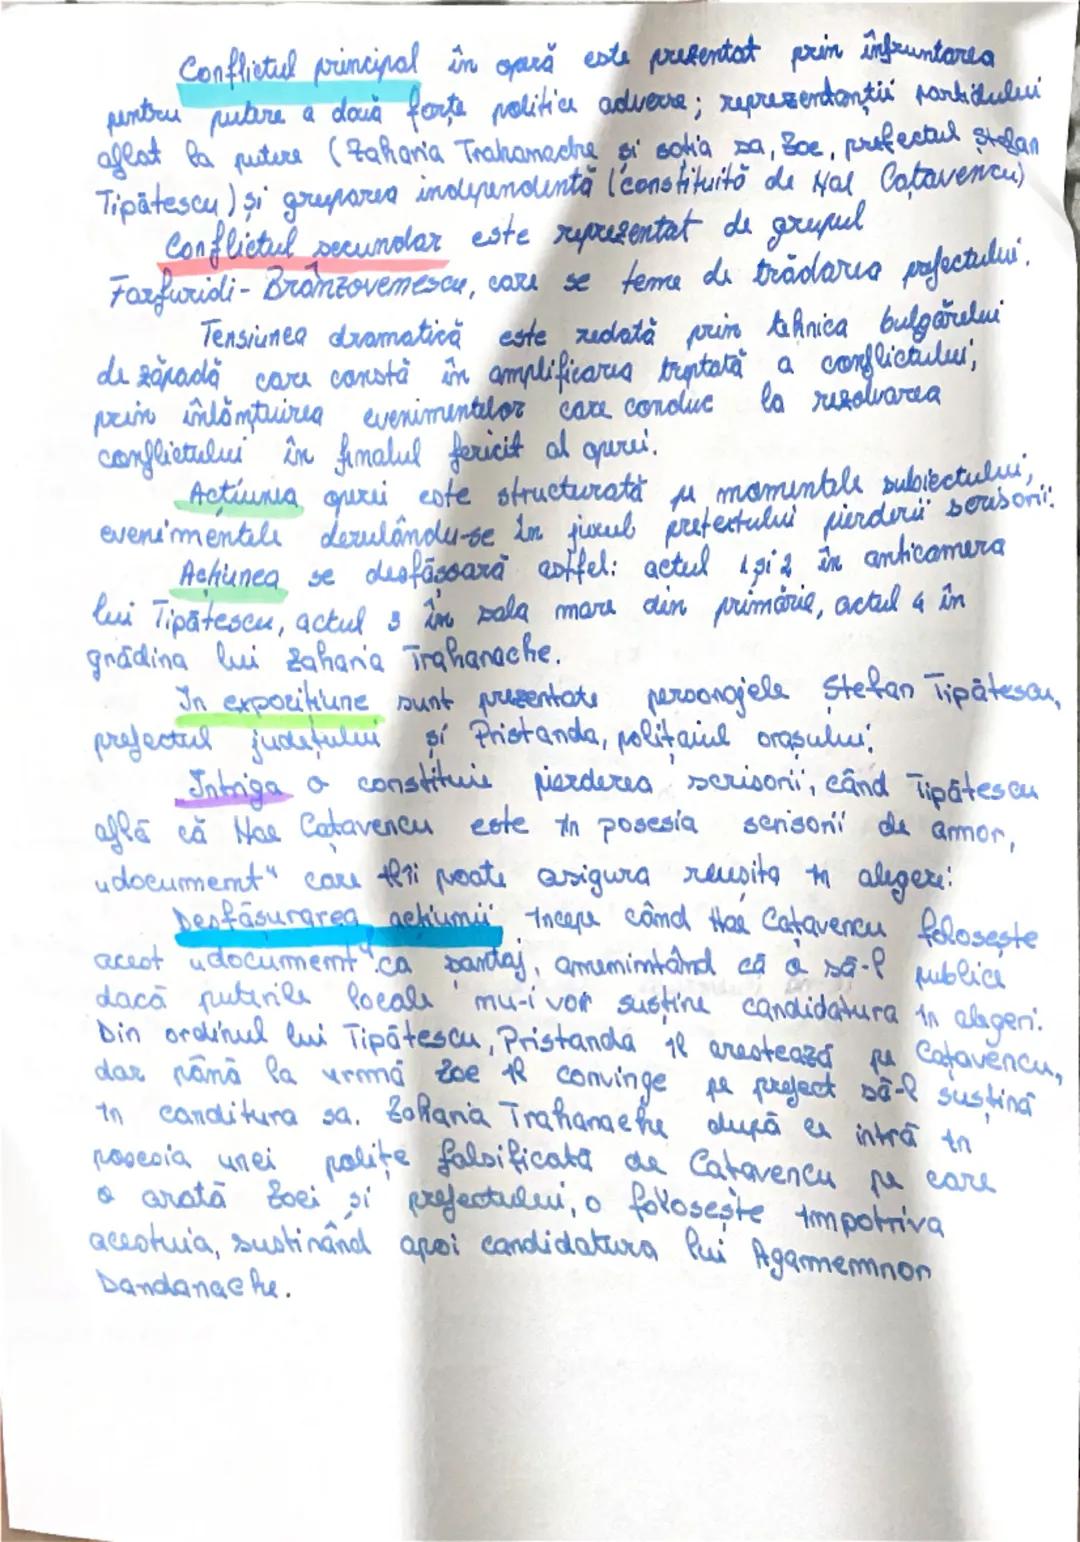 Conflictul principal în operă este prezentat prin înfruntarea
pentru putere a două forțe politice adverse; reprezentanții partidului
aflat la putere (Zaharia Trahanache și soția sa, Zoe, prefectul Ștefan
Tipătescu) și gruparea independentă (constituită de Nae Cațavencu)
Conflictul secundar este reprezentat de grupul
Farfuridi-Brânzovenescu, care se teme de trădarea prefectului.
Tensiunea dramatică este redată prin tehnica bulgărelui
de zăpadă care constă în amplificarea treptată a conflictului;
prin înlănțuirea evenimentelor care conduc la rezolvarea
conflictului în finalul fericit al operei.
Acțiunea operei este structurată pe momentele subiectului;
evenimentele derulându-se în jurul pretextului pierderii scrisorii.
Acțiunea se desfășoară astfel: actul 1 și 2 în anticamera
lui Tipătescu, actul 3 în sala mare din primărie, actul 4 în
grădina lui Zaharia Trahanache.
În expozițiune sunt prezentate personajele Ștefan Tipătescu,
prefectul județului și Pristanda, polițaiul orașului.
Intriga o constituie pierderea scrisorii, când Tipătescu
află că Nae Cațavencu este în posesia scrisorii de amor,
„document" care îi poate asigura reușita în alegeri.
Desfășurarea acțiunii începe când Nae Cațavencu folosește
acest „document" ca șantaj, amenințând că o să-l publice
dacă puterile locale nu-i vor susține candidatura în alegeri.
Din ordinul lui Tipătescu, Pristanda îl arestează pe Cațavencu,
dar până la urmă Zoe îl convinge pe prefect să-l susțină
în canditura sa. Zaharia Trahanache după ce intră în
posesia unei polițe falsificată de Catavencu pe care
o arată Zoei și prefectului, o folosește împotriva
acestuia, susținând apoi candidatura lui Agamemnon
Dandanache.